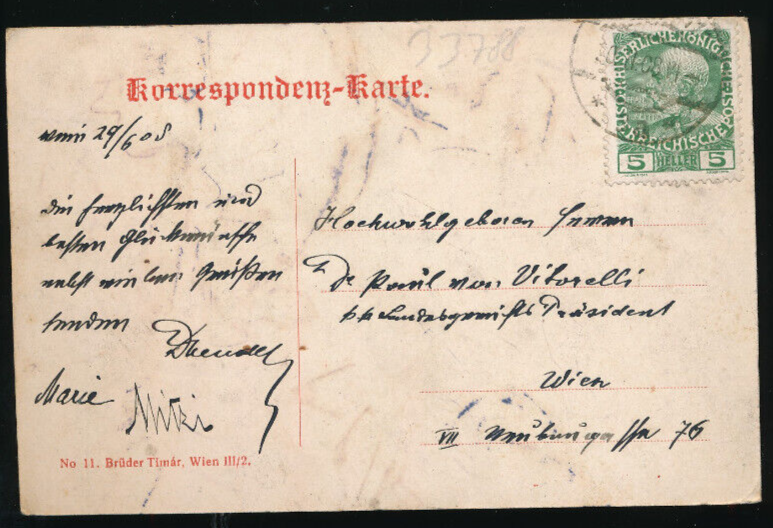 33788
Korrespondenz-Karte.
KAISERLICHE KÖNIGLICHE POST
ÖSTERREICHISCHE
5 HELLER 5
Wien 29/6 08
Die herzlichsten und
besten Glückwünsche
nebst vielen Grüßen
senden
Marie Mitzi
No 11. Brüder Timár, Wien III/2.
Hochwohlgeboren Herrn
Dr Paul von Vitorelli
k k Landesgerichts Präsident
Wien
VII Neubaugasse 76